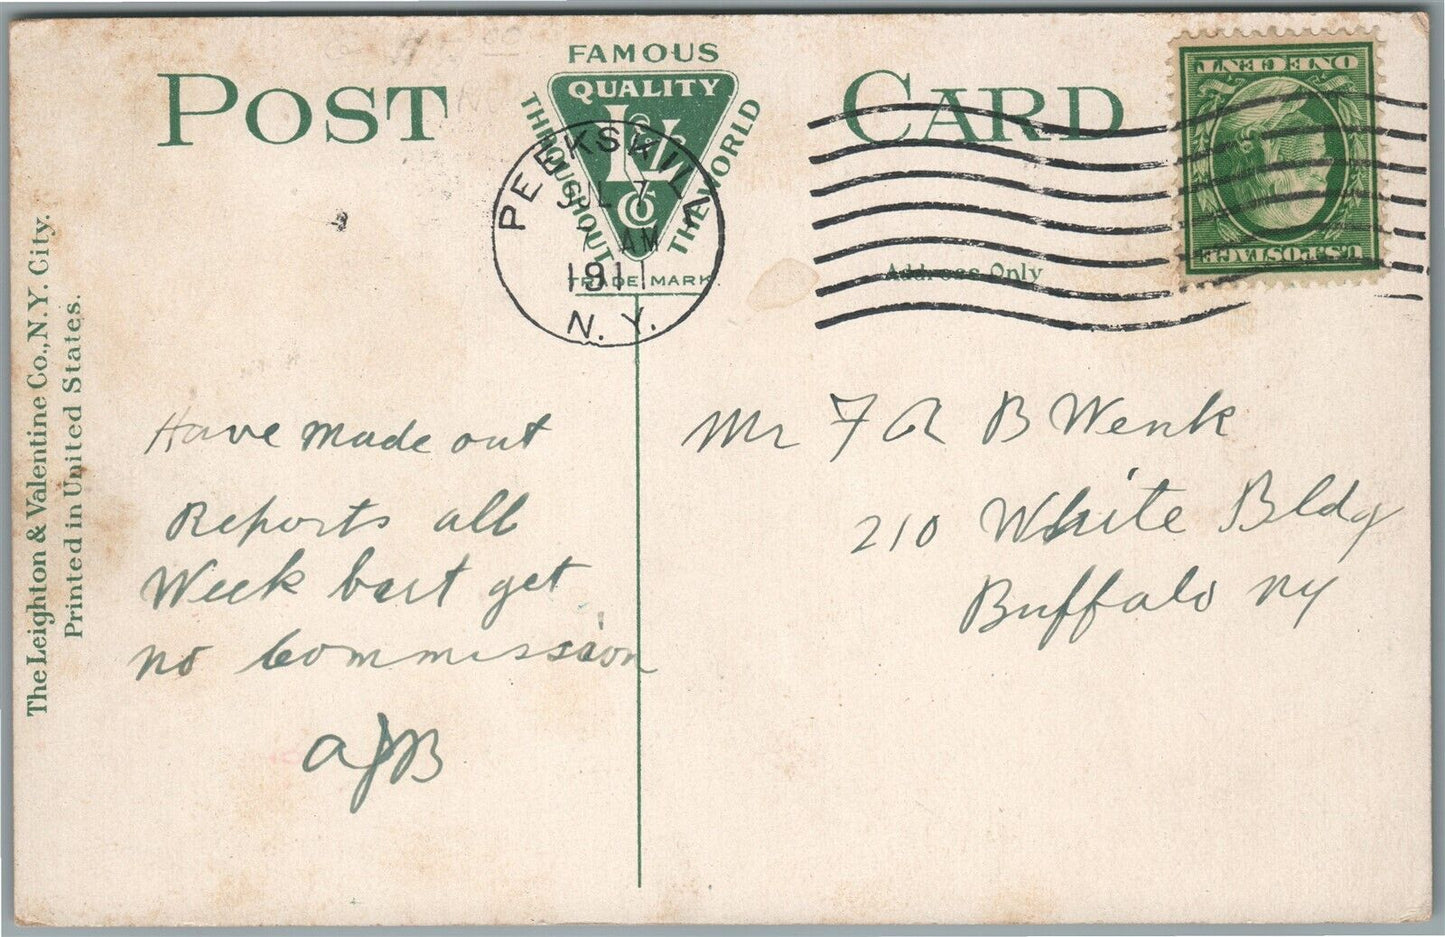 POST CARD
FAMOUS
QUALITY
THROUGHOUT
THE WORLD
L V
Co
TRADE MARK.
PEEKSKILL
JUL 7
AM
1911
N. Y.
Address Only
ONE CENT
U.S. POSTAGE
The Leighton & Valentine Co., N. Y. City.
Printed in United States.
Have made out
Reports all
Week but get
no Commission
AJB
Mr F A B Wenk
210 White Bldg
Buffalo NY